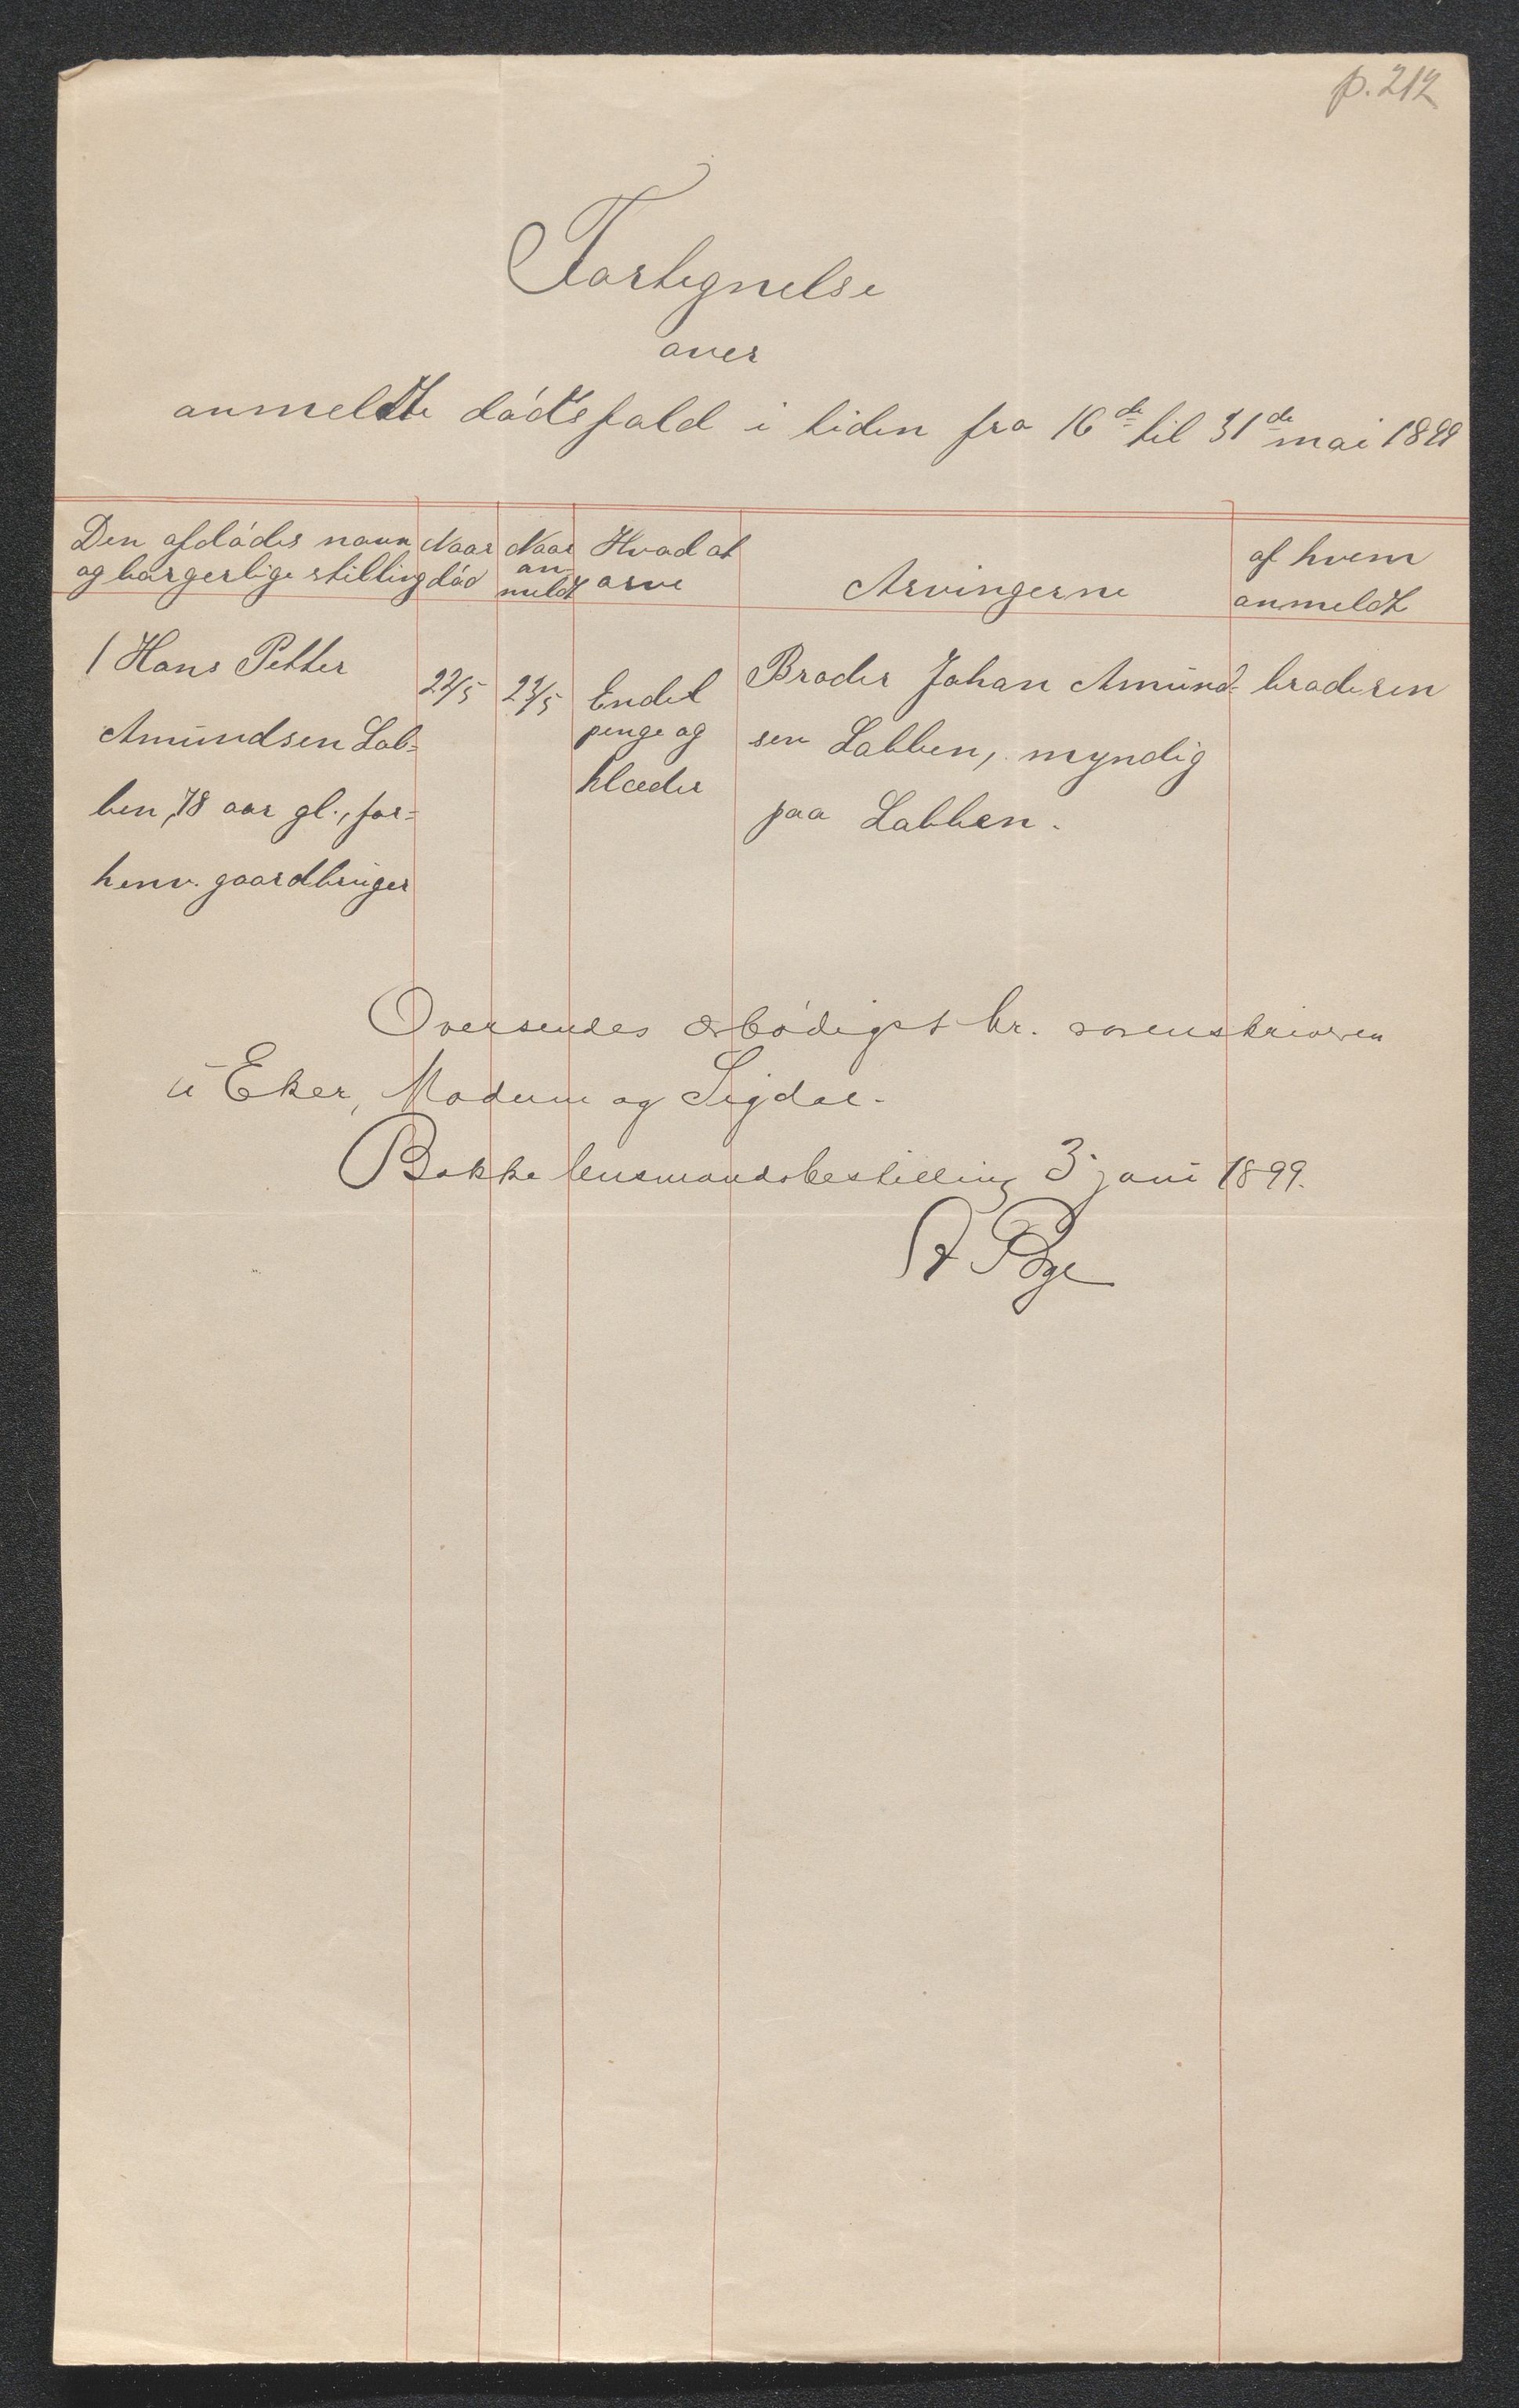 p. 212
Fortegnelse
over
anmeldte dódsfald i tiden fra 16de til 31de mai 1899
Den afdódes navn og borgerlige stilling
Naar dód
Naar an-
meldt
Hvad at
arve
Arvingerne
af hvem
anmeldt
1 Hans Petter
Amundsen Lob-
ben, 78 aar gl., for-
henv. gaardbruger
22/5
23/5
Endel
penge og
klæder
Broder Johan Amund-
sen Lobben, myndig
paa Lobben.
broderen
Oversendes ærbódigst hr. sorenskriveren
i Eker, Modum og Sigdal.
Bakke lensmandsbestilling 3 juni 1899.